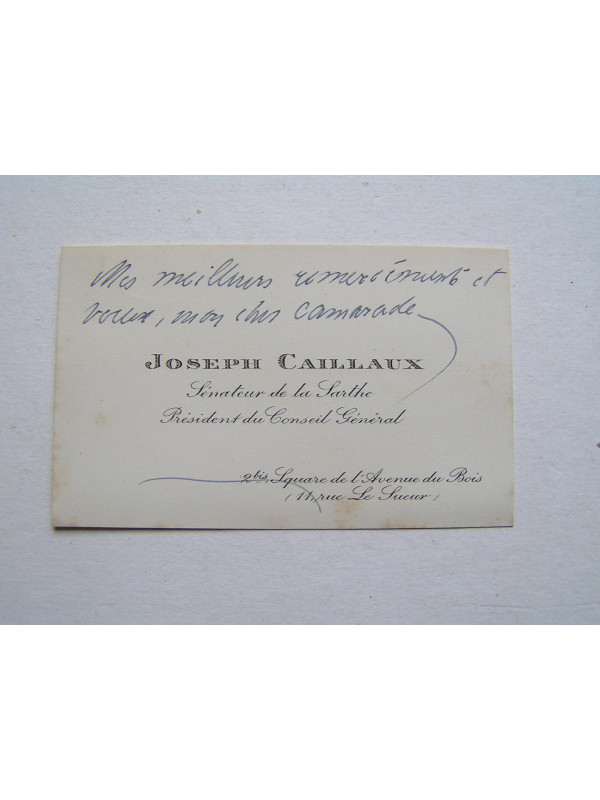 Mes meilleurs remerciements et
voeux, mon cher Camarade
JOSEPH CAILLAUX
Sénateur de la Sarthe
Président du Conseil Général
2bis, Square de l'Avenue du Bois
(11, rue Le Sueur)